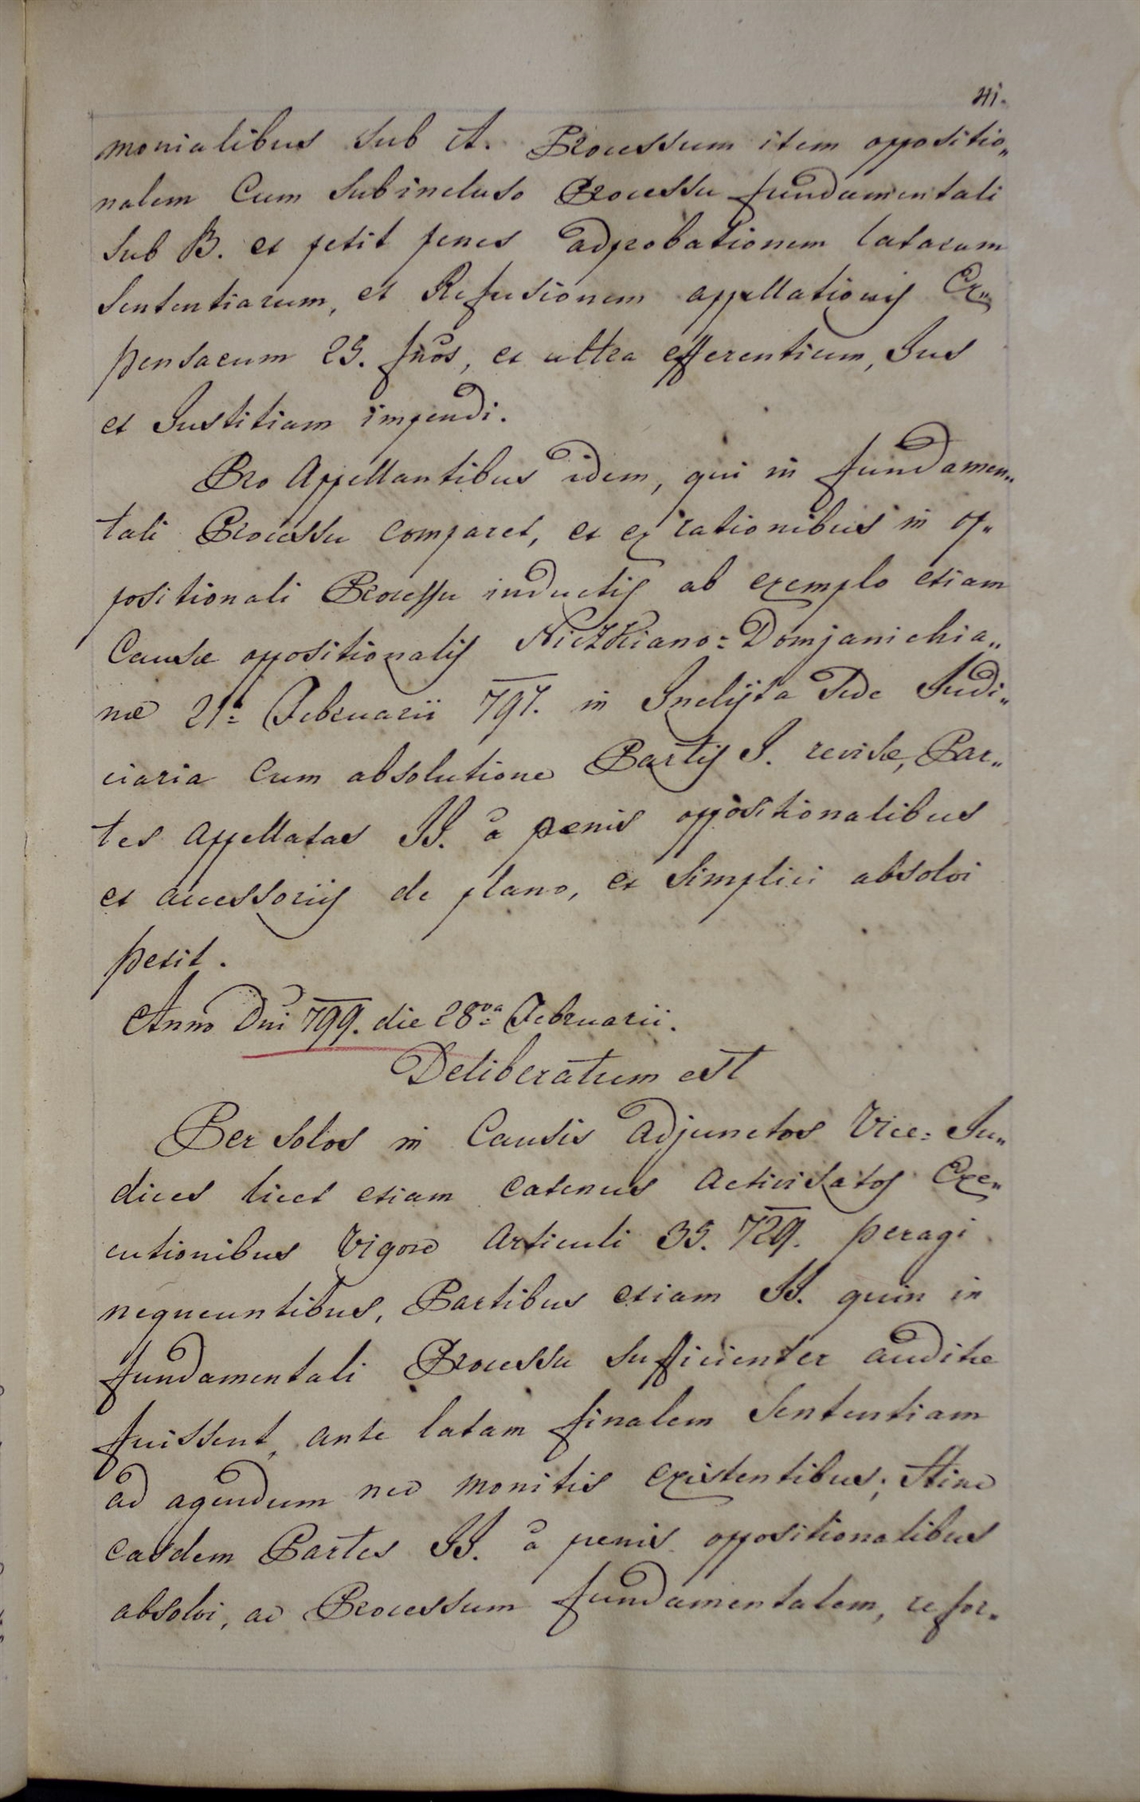 41.
monialibus sub A. Processum item oppositio„
nalem Cum Subincluso Processu fundamentali
sub B. et petit penes adprobationem latarum
Sententiarum, et Refusionem appellationis Ex„
pensarum 25. fnõs, et ultra efferentium, Jus
et Justitiam impendi.
Pro Appellantibus idem, qui in fundamen„
tali Processu comparet, et ex rationibus in op„
positionali Processu inductis ab exemplo etiam
Causæ oppositionalis Niczkiano=Domjanichia„
næ 21a Februarii 797. in Inclyta Sede Judi„
ciaria cum absolutione Partis I. revisæ, Par„
tes Appellatas II. a pœnis oppositionalibus
et accessoriis de plano, et Simplici absolvi
petit.
Anno Dni 799. die 28va Februarii.
Deliberatum est
Per solos in Causis Adjunctos Vice= Ju„
dices licet etiam eatenus Activisatos Exe„
cutionibus Vigore Articuli 35. 729. peragi
nequeuntibus, Partibus etiam II. quin in
fundamentali Processu sufficienter auditæ
fuissent, ante latam finalem Sententiam
ad agendum nec monitis existentibus; Hinc
easdem Partes II. a pœnis oppositionalibus
absolvi, ac Processum fundamentalem, refor„